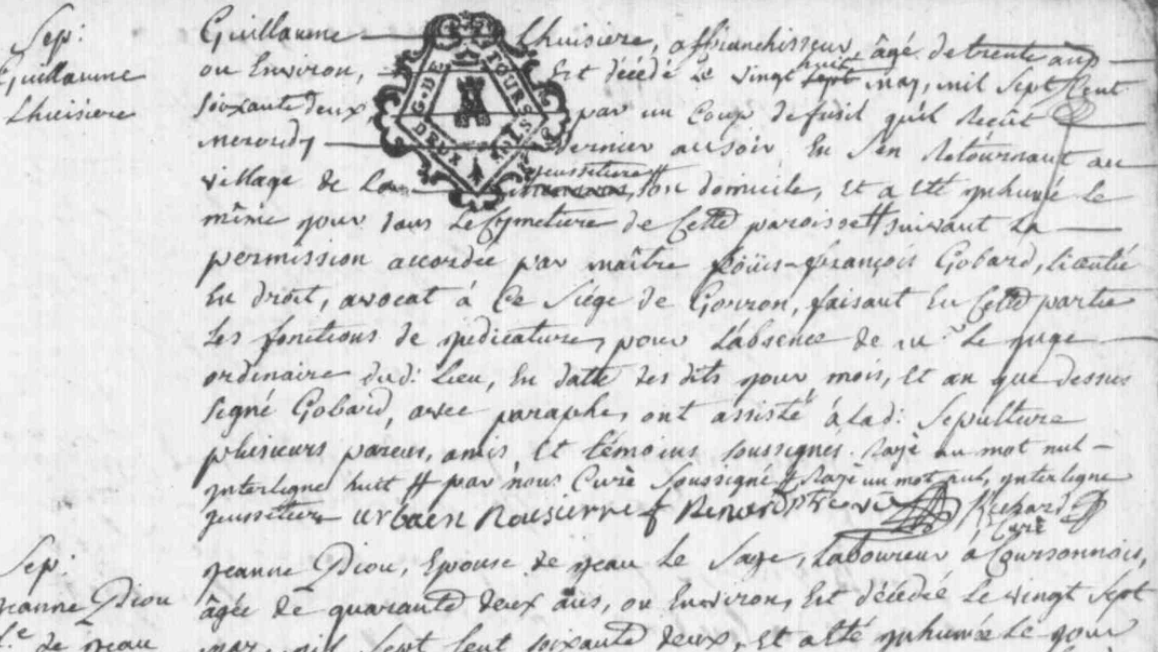 Sep:
Guillaume
Lhuisiere
Guillaume Lhuisiere, affranchisseur, âgé de trente ans
ou Environ, Est décédé Le vingt huit sept may, mil Sept Cent
soixante deux par un Coup de fusil qu'il Reçut
mercredy dernier au soir En s'en Retournant au
village de La jeussetiere # son domicile, Et a Eté ynhumé le
même jour dans Le Cymetiere de Cette paroisse # suivant La
permission accordée par maître Loüis-françois Gobard, licentié
En droit, avocat à Ce Siége de Gorron, faisant En Cette partie
Les fonctions de judicature, pour L'absence de mr Le juge
ordinaire dud: Lieu, En datte des dits jour mois, Et an que dessus
Signé Gobard, avec paraphe, ont assisté à Lad: Sepulture
plusieurs parens, amis, Et témoins soussignés. Rayé un mot nul
ynterligne huit # par nous Curé Soussigné # Rayé un mot nul, ynterligne
jeussetiere urbaen Rousierre f Rener Richard
Curé
G. DE TOURS
DEUX SOLS
Sep:
jeanne Diou
fe de jean
jeanne Diou, Epouse de jean Le Sage, Laboureur à Coursonnois,
âgée de quarante deux ans, ou Environ, Est décédée Le vingt Sept
may, mil Sept Cent soixante deux, Et a Eté ynhumée Le jour